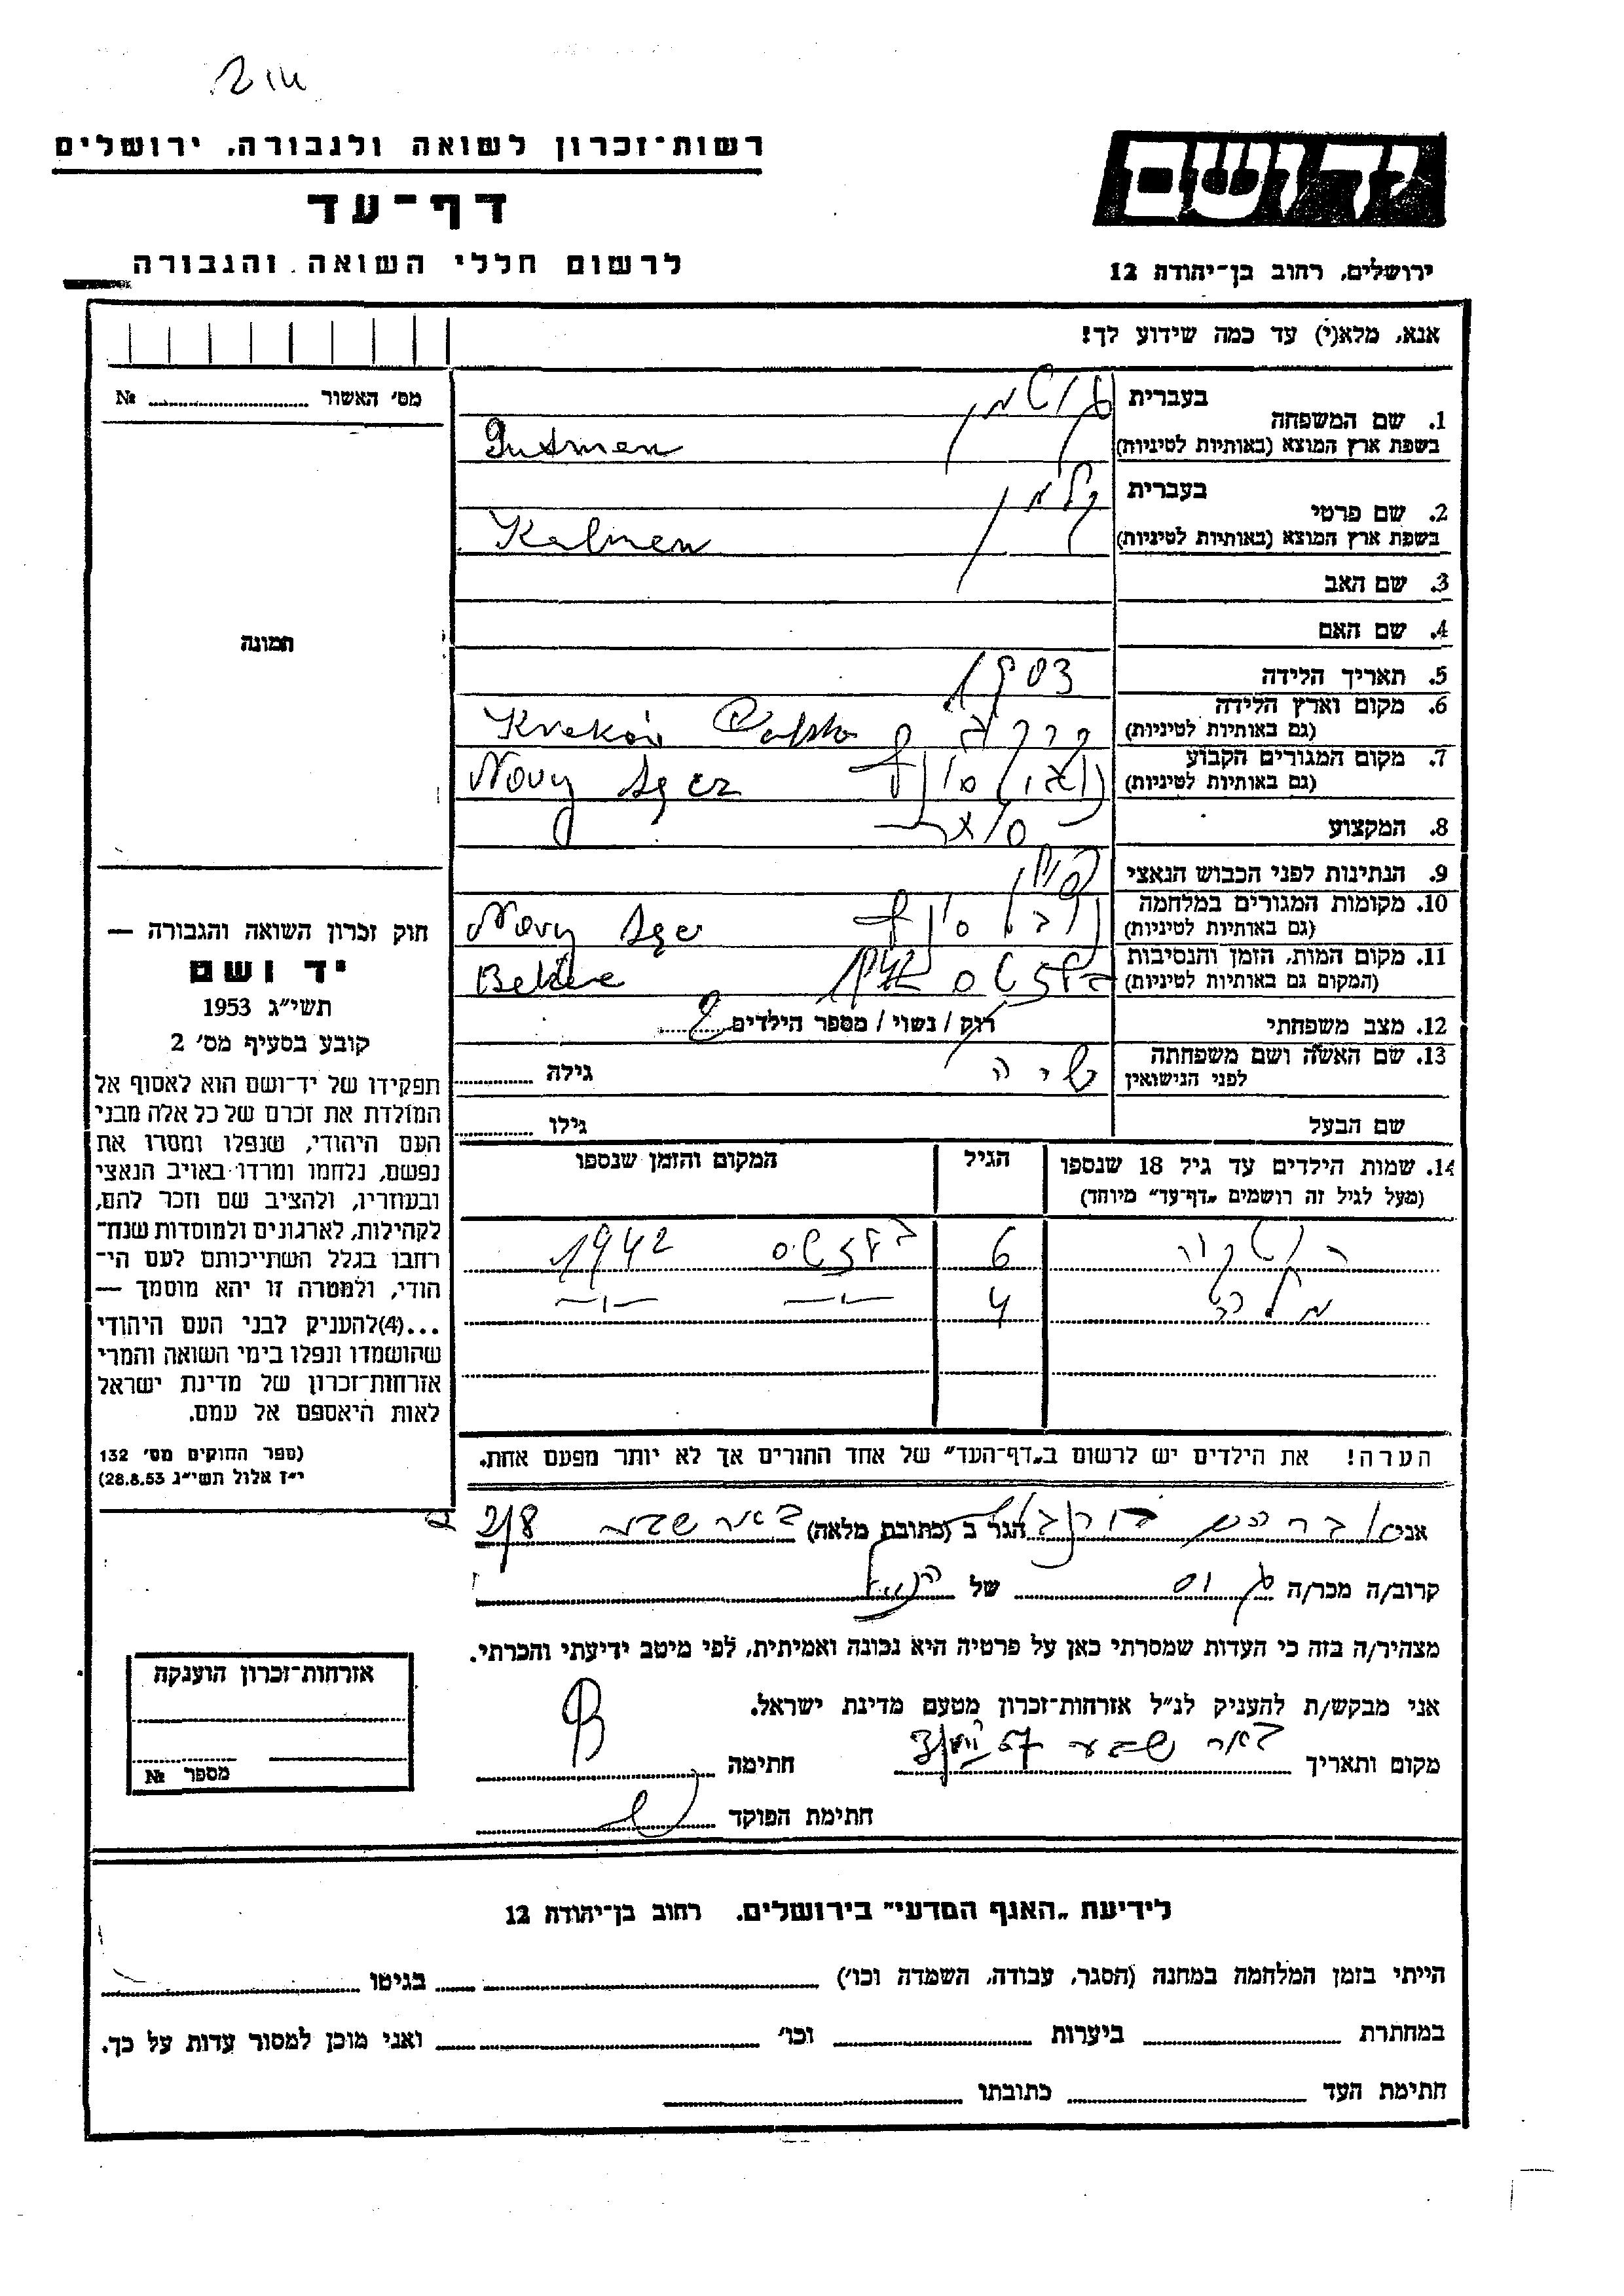 רשות־זכרון לשואה ולגבורה, ירושלים
דף־עד
לרשום חללי השואה והגבורה
יד ושם
ירושלים, רחוב בן־יהודה 12
אנא, מלא(י) עד כמה שידוע לך!
מס׳ האשור № ....................
תמונה
1. שם המשפחה
בעברית גוטמן
בשפת ארץ המוצא (באותיות לטיניות) Gutmen
2. שם פרטי
בעברית קלמן
בשפת ארץ המוצא (באותיות לטיניות) Kalmen
3. שם האב
4. שם האם
5. תאריך הלידה 1903
6. מקום וארץ הלידה
(גם באותיות לטיניות) Krakóv Polska
7. מקום המגורים הקבוע
(גם באותיות לטיניות) Novy Sącz
8. המקצוע
9. הנתינות לפני הכבוש הנאצי
10. מקומות המגורים במלחמה
(גם באותיות לטיניות) Novy
11. מקום המות, הזמן והנסיבות
(המקום גם באותיות לטיניות) 1942
12. מצב משפחתי רווק / נשוי / מספר הילדים 2
13. שם האשה ושם משפחתה
לפני הנישואין גילה
שם הבעל גילו
14. שמות הילדים עד גיל 18 שנספו
(מעל לגיל זה רושמים „דף־עד״ מיוחד)
הגיל
המקום והזמן שנספו
6 1942
4 —״— —״—
הערה! את הילדים יש לרשום ב„דף־העד״ של אחד ההורים אך לא יותר מפעם אחת.
חוק זכרון השואה והגבורה —
יד ושם
תשי״ג 1953
קובע בסעיף מס׳ 2
תפקידו של יד־ושם הוא לאסוף אל
המולדת את זכרם של כל אלה מבני
העם היהודי, שנפלו ומסרו את
נפשם, נלחמו ומרדו באויב הנאצי
ובעוזריו, ולהציב שם וזכר להם,
לקהילות, לארגונים ולמוסדות שנח־
רבו בגלל השתייכותם לעם הי־
הודי, ולמטרה זו יהא מוסמך —
...(4)להעניק לבני העם היהודי
שהושמדו ונפלו בימי השואה והמרי
אזרחות־זכרון של מדינת ישראל
לאות היאספם אל עמם.
(ספר החוקים מס׳ 132
י״ז אלול תשי״ג 28.8.53)
אני אברהם הגר ב (כתובת מלאה) באר שבע
קרוב/ה מכר/ה גיס של הנ״ל
מצהיר/ה בזה כי העדות שמסרתי כאן על פרטיה היא נכונה ואמיתית, לפי מיטב ידיעתי והכרתי.
אני מבקש/ת להעניק לנ״ל אזרחות־זכרון מטעם מדינת ישראל.
מקום ותאריך באר שבע חתימה
חתימת הפוקד
אזרחות־זכרון הוענקה
מספר №
לידיעת „האגף המדעי״ בירושלים, רחוב בן־יהודה 12
הייתי בזמן המלחמה במחנה (הסגר, עבודה, השמדה וכו׳) בגיטו
במחתרת ביערות וכו׳ ואני מוכן למסור עדות על כך.
חתימת העד כתובתו